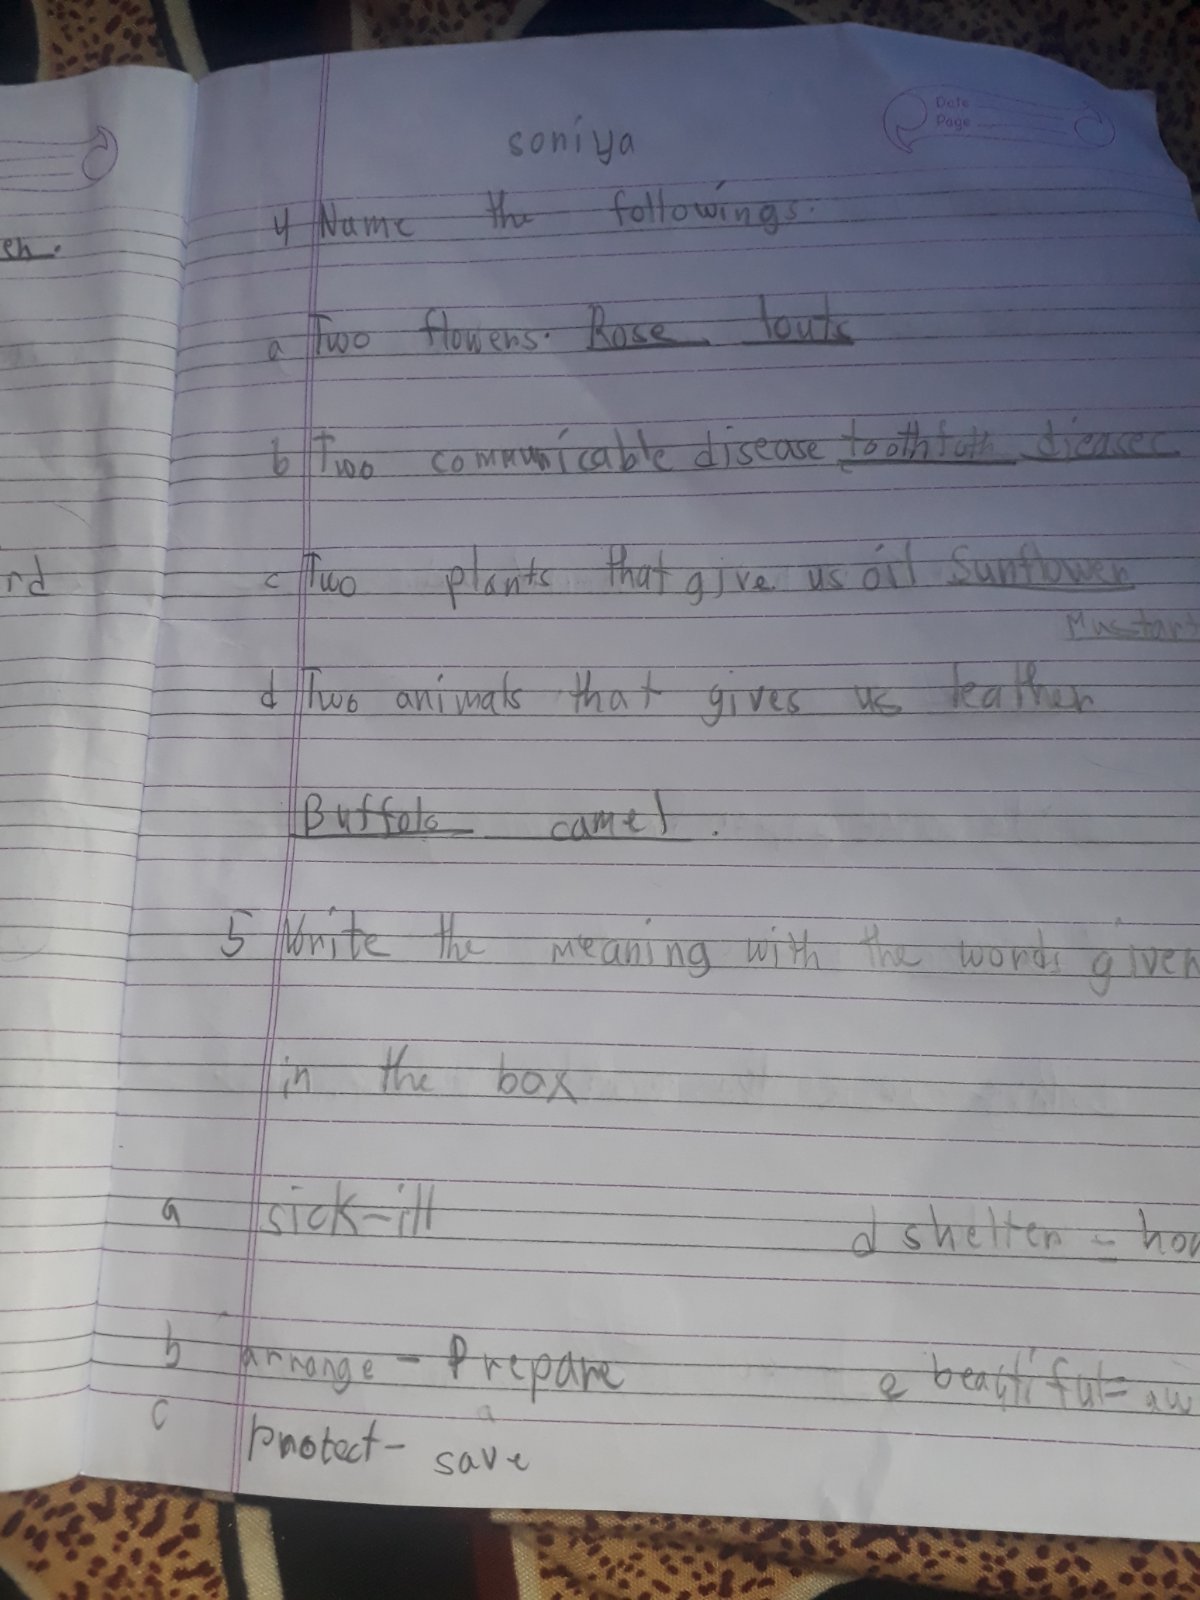 en.
rd
Date
Page
soniya
4 Name the followings.
a Two flowers. Rose louts
b Two communicable disease toothfoth dieases
c Two plants that give us oil Sunflower
Mustart
d Two animals that gives us leather
Buffelo camel.
5 Write the meaning with the words given
in the box
a sick-ill
d shelter = hom
b arrange - Prepare
e beautiful = aw
c protect - save